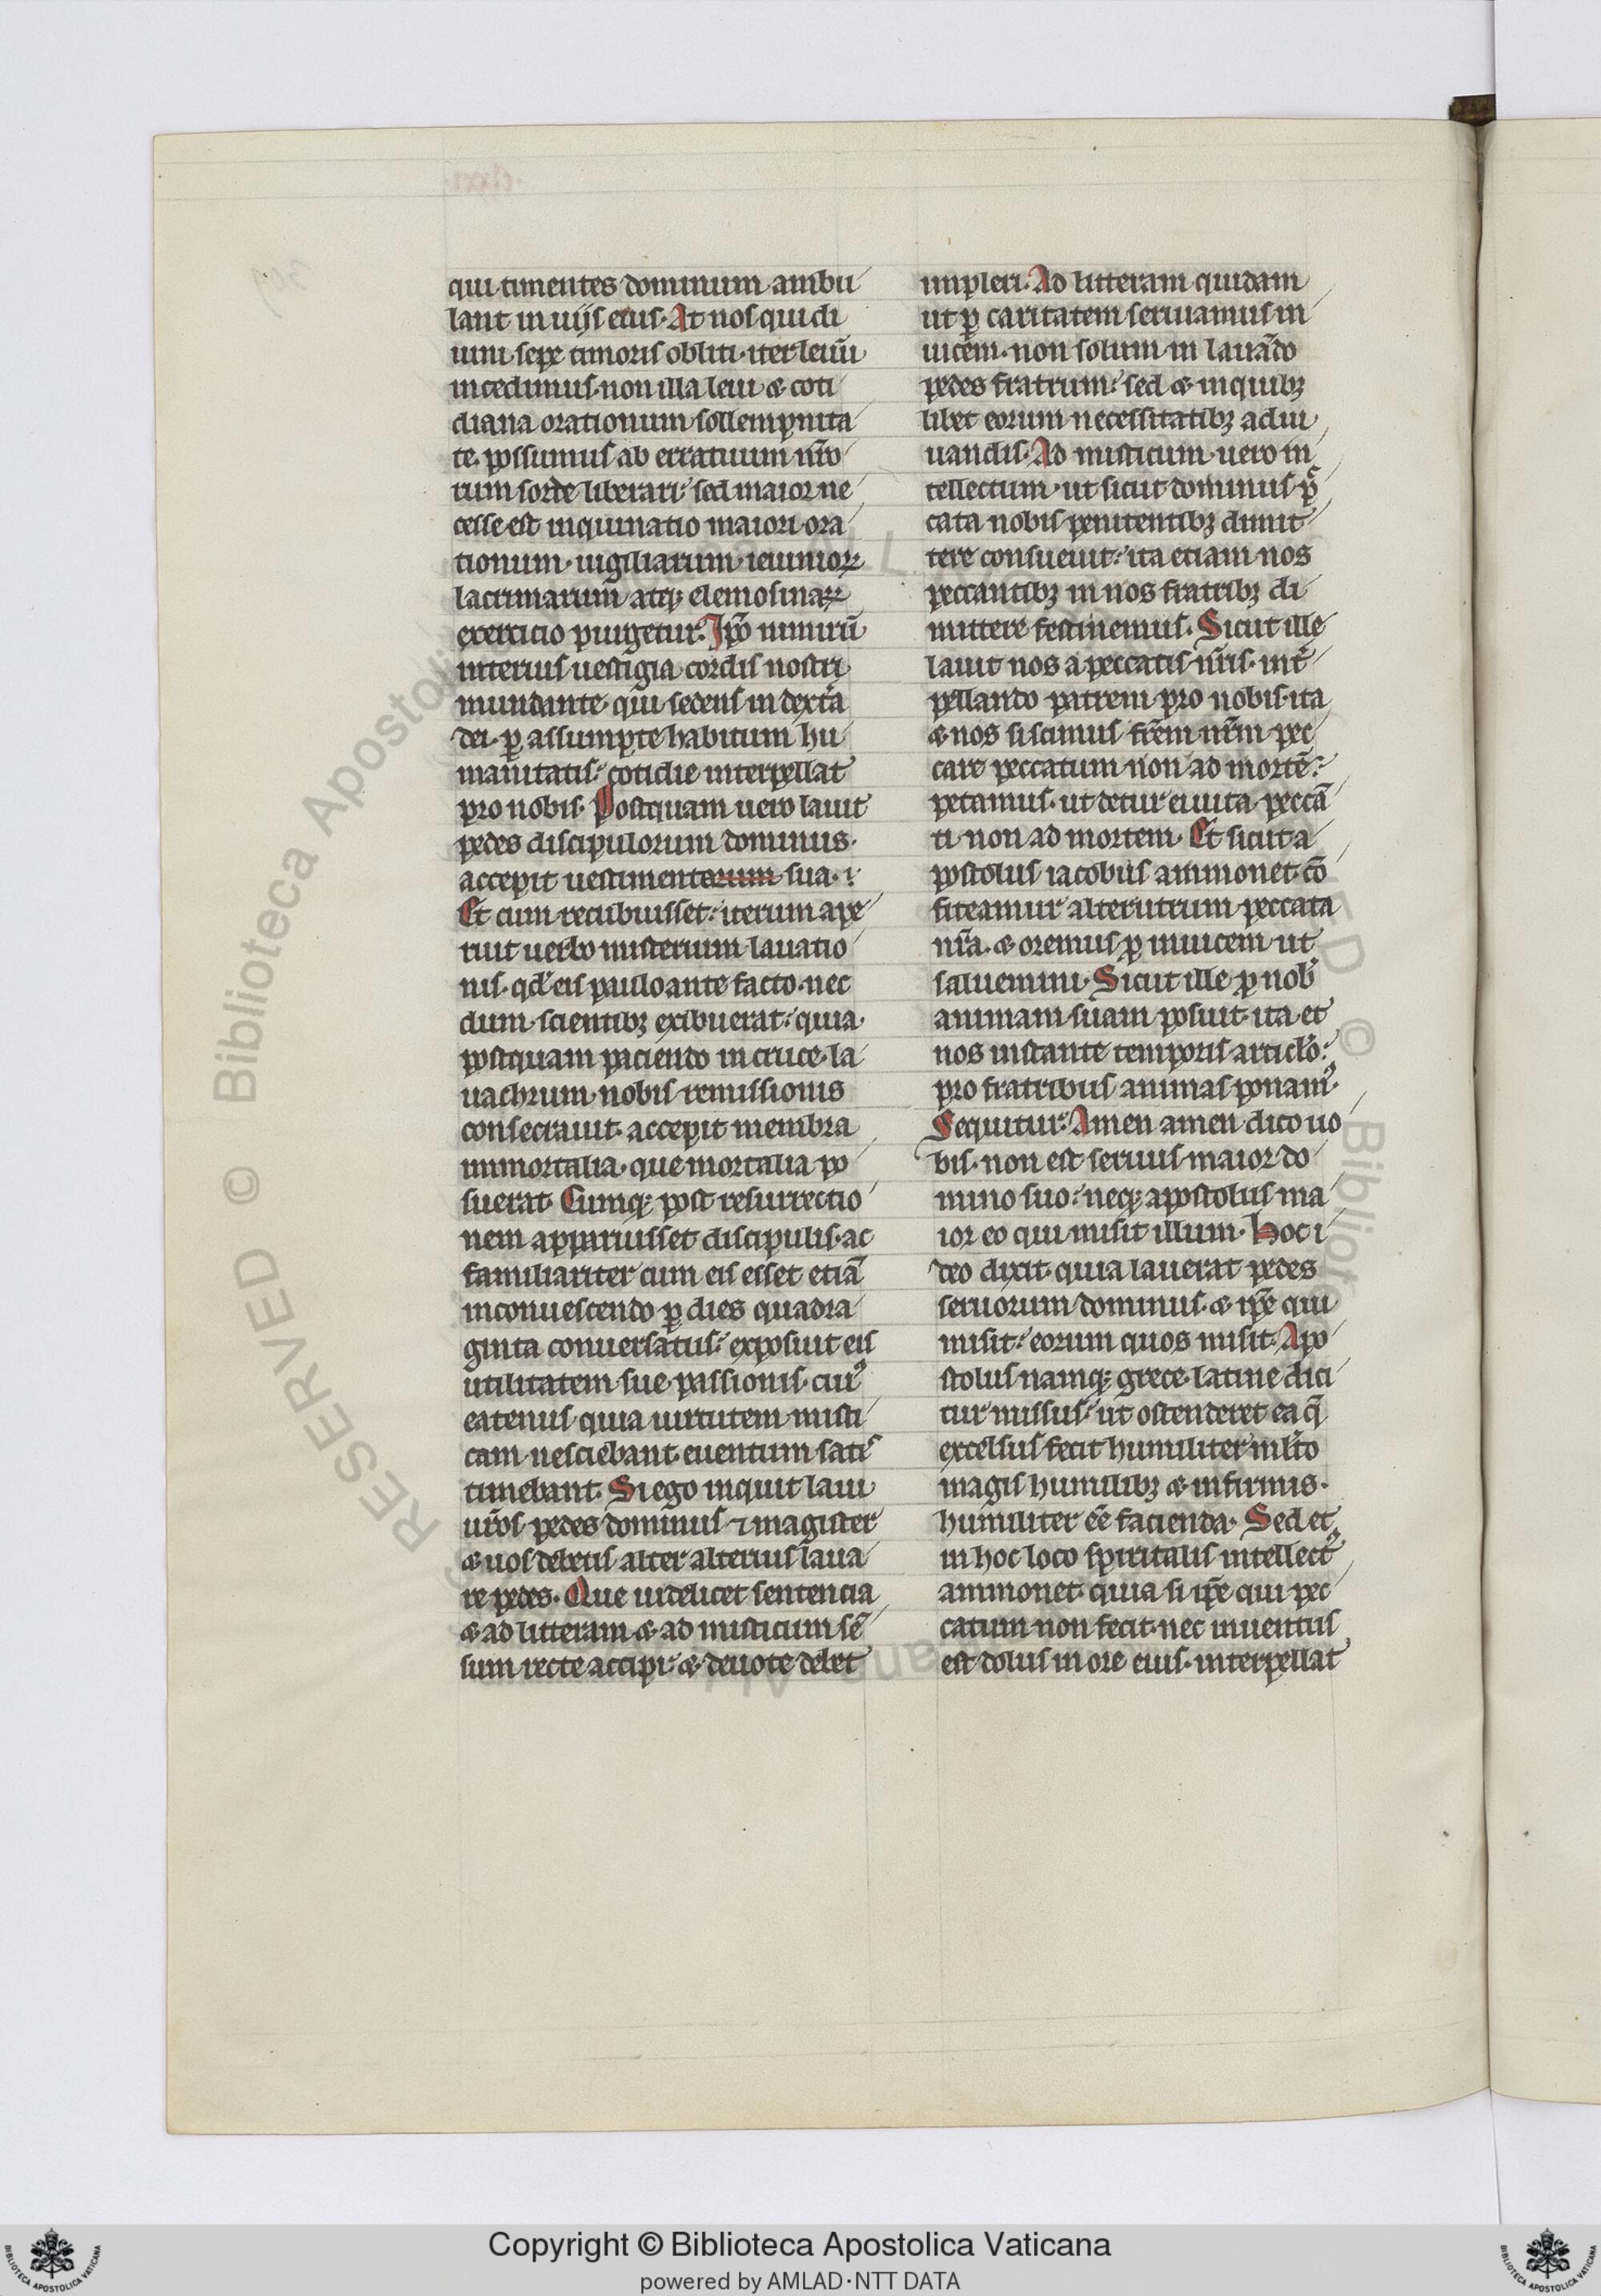 qui timentes dominum ambu
lant in uijs eius. At nos qui di
uini sepe timoris obliti iter leuu᷑
incedimus. non illa leui & coti
diana orationum sollempnita
te. possumus ab erratuum nr̄o
rum sorde liberari. sed maior ne
cesse est inquinatio maiori ora
tionum. uigiliarum. ieiunioꝝ
lacrimarum atqꝫ elemosinaꝝ
exercicio purgetur. Ip̄o nimirū
interius uestigia cordis nostri
mundante. qui sedens in dextᷓa
dei. ꝑ assumpte habitum hu
manitatis. cotidie interpellat
pro nobis. Postquam uero lauit
pedes discipulorum dominus.
accepit uestimentorum sua.
Et cum recubuisset. iterum ape
ruit uerbo misterium lauatio
nis. qd̓ eis paulo ante facto. nec
dum scientibꝫ exibuerat. quia
postquam paciendo in cruce. la
uachrum nobis remissionis
consecrauit. accepit membra
immortalia. que mortalia po
suerat. Cumqꝫ post resurrectio
nem apparuisset discipulis. ac
familiariter cum eis esset etiā
in conuescendo ꝑ dies quadra
ginta conuersatus. exposuit eis
utilitatem sue passionis. cuiꝰ
eatenus quia uirtutem misti
cam nesciebant. euentum satis
timebant. Si ego inquit laui
ur̄os pedes dominus ⁊ magister
& uos debetis alter alterius laua
re pedes. Que uidelicet sentencia
& ad litteram & ad misticum sē
sum recte accipi. & deuote debet
impleri. Ad litteram quidam
ut ꝑ caritatem seruiamus in
uicem. non solum in lauādo
pedes fratrum. sed & in quibꝫ
libet eorum necessitatibꝫ adiu
uandis. Ad misticum uero in
tellectum. ut sicut dominus pͨ
cata nobis penitentibꝫ dimit
tere consueuit. ita etiam nos
peccantibꝫ in nos fratribꝫ di
mittere festinemus. Sicut ille
lauit nos a peccatis nr̄is. int̓
pellando patrem pro nobis. ita
& nos si scimus fr̄em nr̄m pec
care peccatum non ad mortē.
petamus. ut detur ei uita peccā
ti non ad mortem. Et sicut a
postolus iacobus ammonet. cō
fiteamur alterutrum peccata
nr̄a. & oremus ꝑ inuicem ut
saluemini. Sicut ille ꝑ nob̓
animam suam posuit. ita et
nos instante temporis articl̓o.
pro fratribus animas ponamꝰ.
Sequitur. Amen amen dico uo
bis. non est seruus maior do
mino suo. neqꝫ apostolus ma
ior eo qui misit illum. Hoc i
deo dixit. quia lauerat pedes
seruorum dominus. & ip̄e qui
misit. eorum quos misit. Apo
stolus namqꝫ grece. latine dici
tur missus. ut ostenderet ea q̄
excelsus fecit humiliter ml̓to
magis humilibꝫ & infirmis.
humiliter ēē facienda. Sed et
in hoc loco spiritalis intellectꝰ
ammonet. quia si ip̄e qui pec
catum non fecit. nec inuentus
est dolus in ore eius. interpellat
RESERVED © Biblioteca Apostol
Copyright © Biblioteca Apostolica Vaticana
powered by AMLAD·NTT DATA
BIBLIOTECA APOSTOLICA VATICANA
BIBLIOTECA APOSTOLICA VATICANA